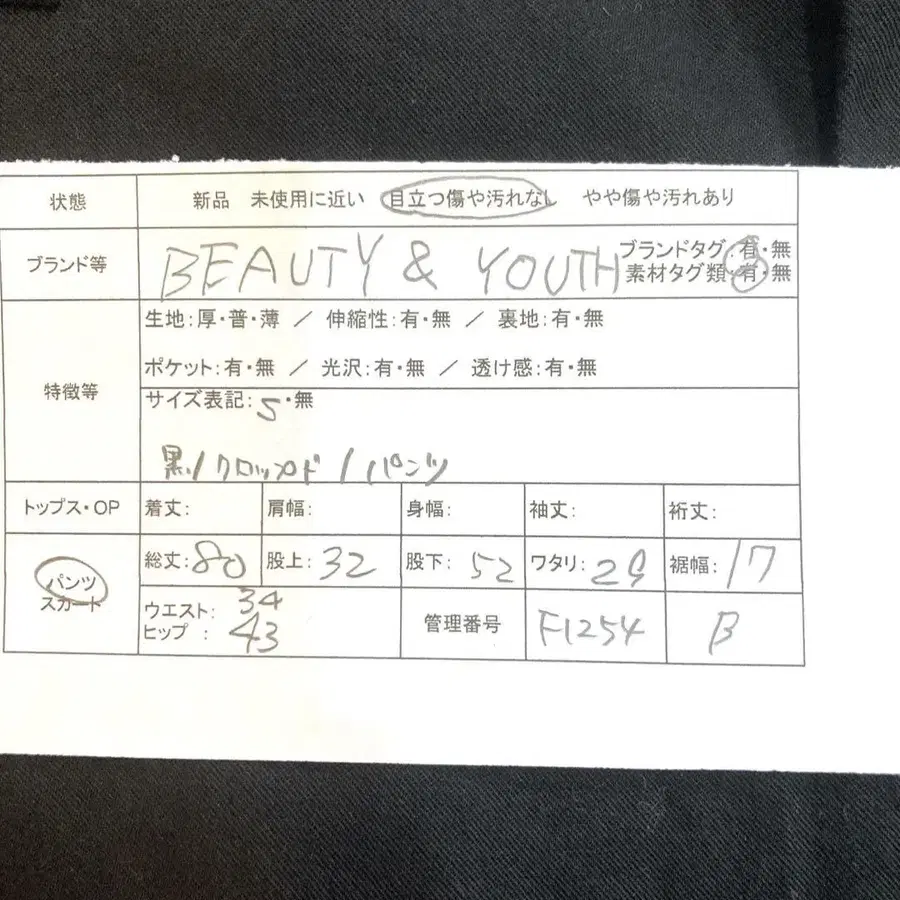 状態 新品 未使用に近い 目立つ傷や汚れなし やや傷や汚れあり
ブランド等 BEAUTY & YOUTH ブランドタグ:有・無
素材タグ類:有・無
特徴等 生地:厚・普・薄 / 伸縮性:有・無 / 裏地:有・無
ポケット:有・無 / 光沢:有・無 / 透け感:有・無
サイズ表記:S・無
黒/クロップド/パンツ
トップス・OP 着丈: 肩幅: 身幅: 袖丈: 裄丈:
パンツ
スカート
総丈:80 股上:32 股下:52 ワタリ:29 裾幅:17
ウエスト:34
ヒップ:43
管理番号 F1254 B